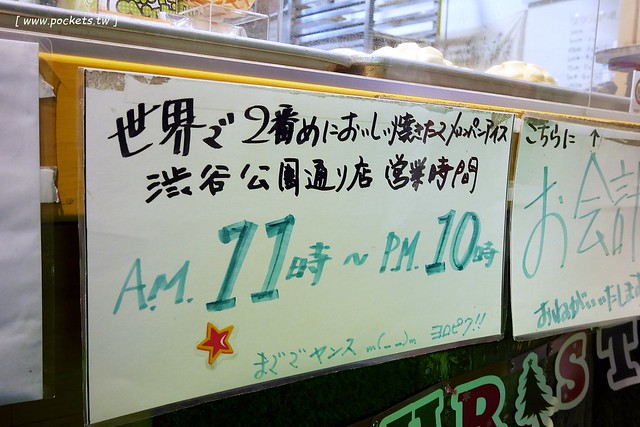 [ www.pockets.tw ]
世界で2番めにおいしい焼きたてメロンパンアイス
渋谷公園通り店 営業時間
A.M. 11時 ~ P.M. 10時
までマンス m(_ _)m ヨロピク!!
こちらに ↑
お会計
おねがいいたします